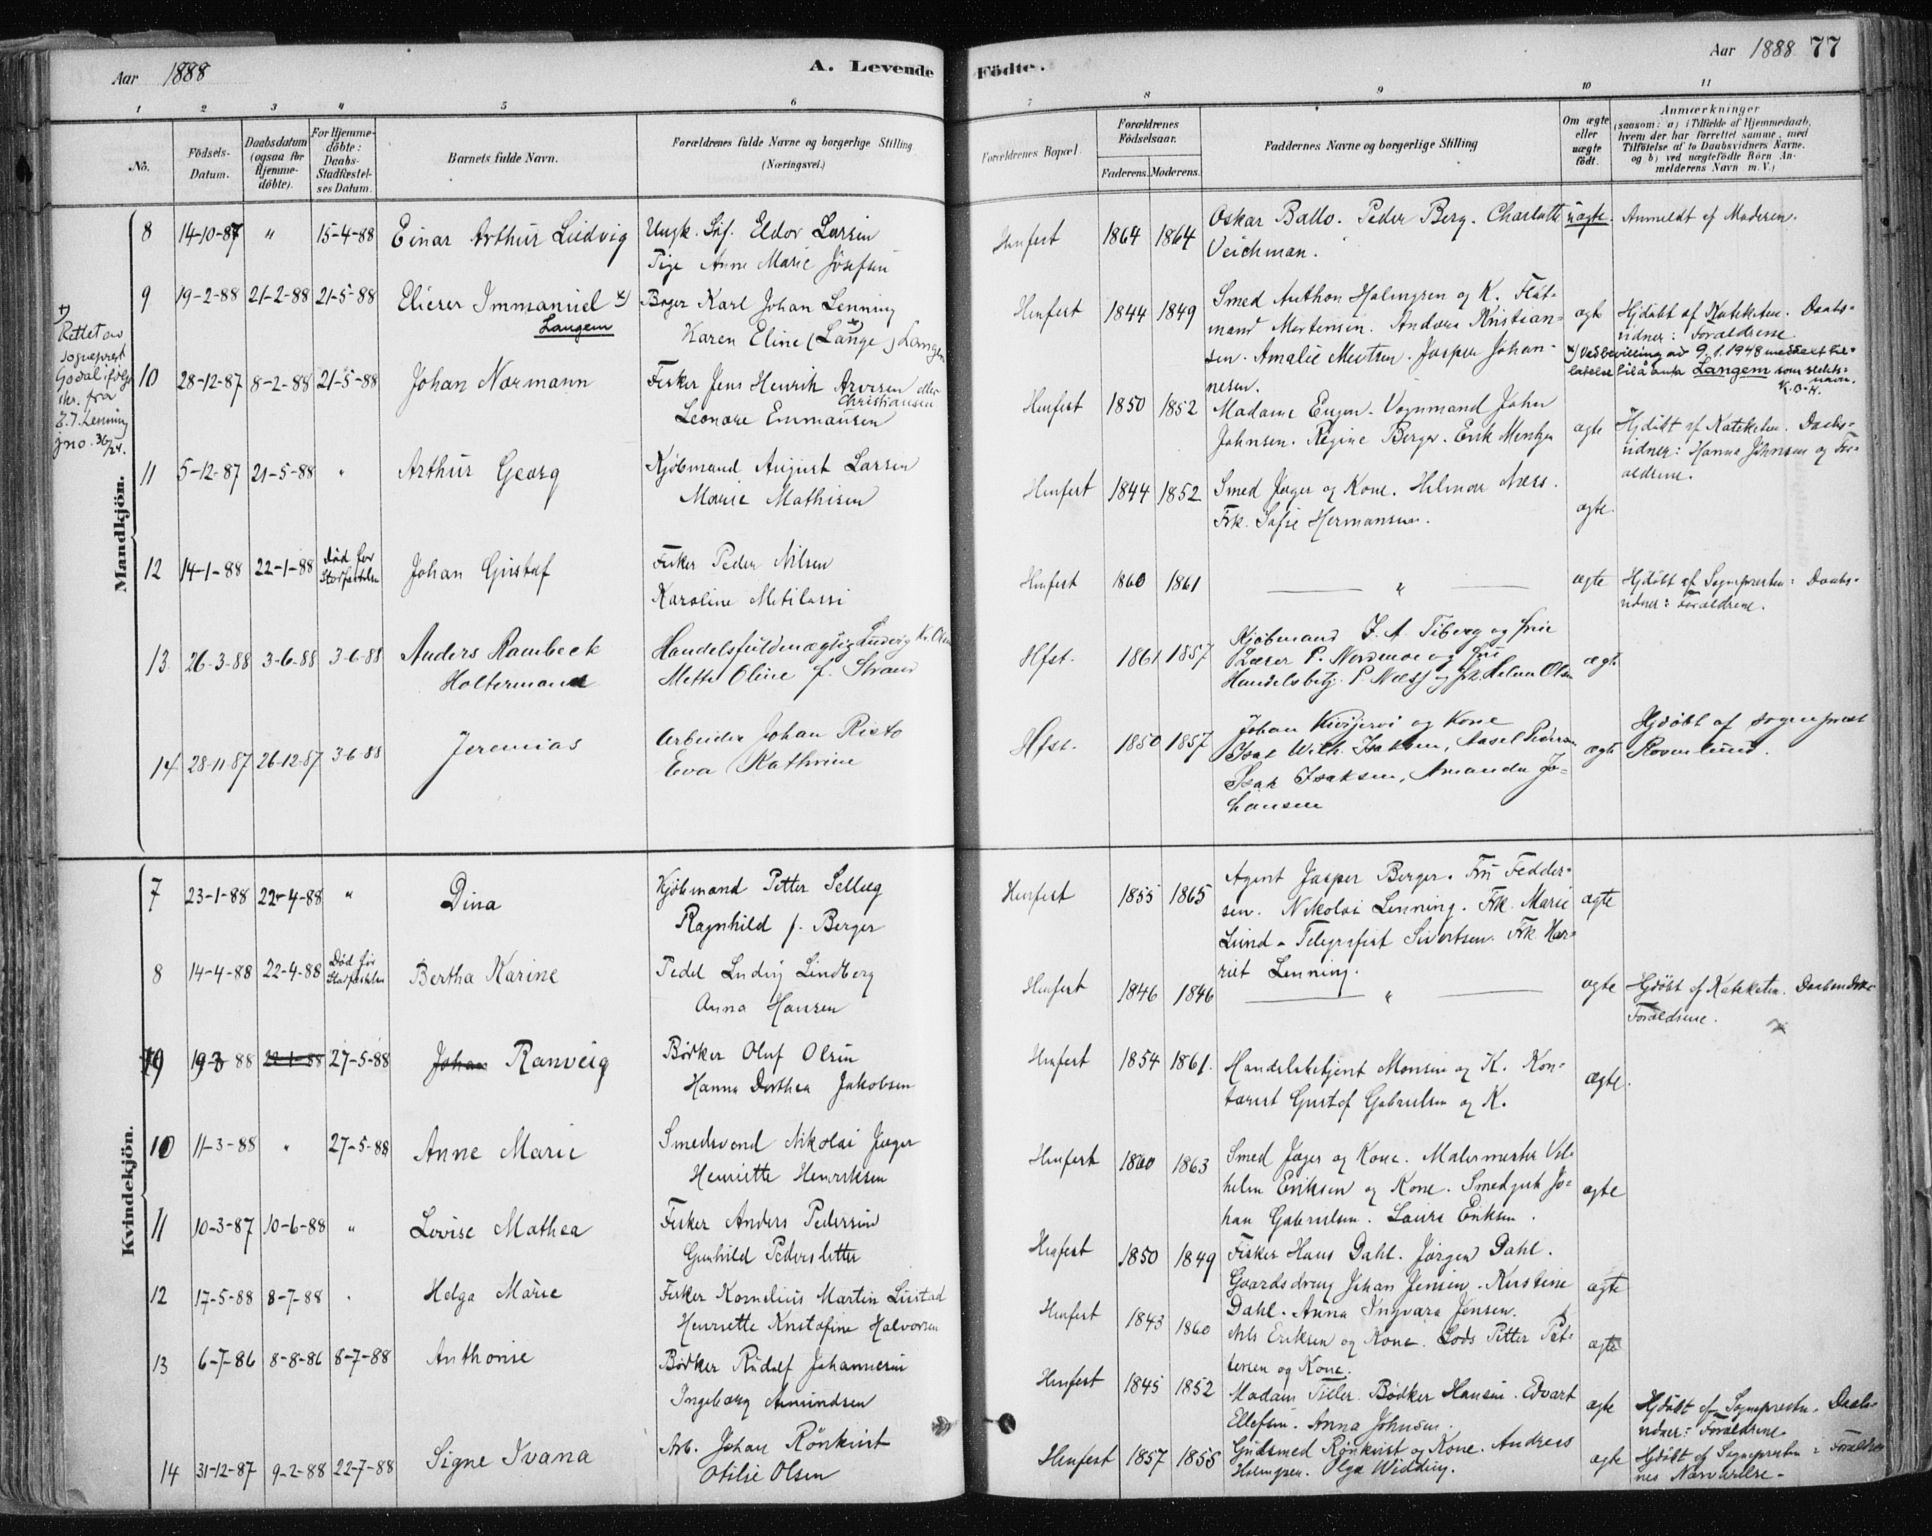 Aar 1888
A. Levende Födte.
Aar 1888 77
1 2 3 4 5 6 7 8 9 10 11
No.
Födsels-Datum.
Daabsdatum (ogsaa for Hjemme-döbte).
For Hjemme-döbte: Daabs-Stadfæstel-ses Datum.
Barnets fulde Navn.
Forældrenes fulde Navne og borgerlige Stilling (Næringsvei.)
Forældrenes Bopæl.
Forældrenes Födselsaar.
Faderens. Moderens.
Faddernes Navne og borgerlige Stilling
Om ægte eller uægte födt.
Anmærkninger
(saasom: a) i Tilfælde af Hjemmedaab,
hvem der har forrettet samme, med
Tilföielse af to Daabsvidners Navne,
og b) ved uægtefödte Börn An-
melderens Navn m. V.)
Mandkjön.
8 14-10-87 " 15-4-88 Einar Arthur Ludvig
Ungk. Eldor Larsen
Pige Anne Marie Josefsen
Hmfest 1864 1864
Oskar Ballo. Peder Berg. Charlotte
Veichman.
uægte. Anmeldt af Moderen.
9 19-2-88 21-2-88 21-5-88 Elieser Immanuel x)
Langem
Bager Karl Johan Lenning
Karen Eline (Lange) Langem
Hmfest 1844 1849
Smed Anthon Holmgren og K. Flöt-
mand Mortensen. Anders Kristian-
sen. Amalie Mentsen. Jasper Johan-
nesen.
ægte Hjdöbt af Kateketen. Daabs-
vidner: Forældrene.
x) Ved bevilling av 9.1.1948 meddelt til-
latelse til å anta Langem som slekts-
navn.
K.O.H.
x)
Rettet av
sogneprest
Godal ifølge
skr. fra
E.J. Lenning
jno. 36/24.
10 28-12-87 8-2-88 21-5-88 Johan Normann
Fisker Jens Henrik Arvesen eller
Christiansen
Leonore Enmausen
Hmfest 1850 1852
Madame Eugen. Vognmand Johan
Johnsen. Regine Berger. Erik Mentzen
ægte Hjdöbt af Kateketen. Daabs-
vidner: Hanna Johnsen og For-
ældrene.
11 5-12-87 21-5-88 " Arthur Georg
Kjöbmand August Larsen
Marie Mathisen
Hmfest 1844 1852
Smed Jæger og Kone. Hilmar Næss.
Frk. Sofie Hermansen.
ægte.
12 14-1-88 22-1-88 Död før Stadfæstelsen Johan Gustaf
Fisker Peder Nilsen
Karoline Metilassi
Hmfest 1860 1861
"
ægte Hjdöbt af Sognepresten: Daabs-
vidner: Forældrene.
13. 26-3-88 3-6-88 3-6-88 Anders Rambeck
Holtermann
Handelsfuldmægtig Ludvig Kr. Olsen
Mette Oline f. Strand
Hfst. 1861 1857
Kjöbmand J. A. Tiberg og frue
Læser P. Nordmoe og fru
Handelsbetj. P. Næss og Helene Olsen
ægte
14 28-11-87 26-12-87 3-6-88 Jeremias
Arbeider Johan Risto
Eva Kathrine
Hfst. 1850 1857
Johan Kivijervi og Kone
Isak Wilh. Isaksen, Aasel Pedersen
Isak Isaksen, Amanda Jo-
hansen
ægte Hjdöbt af Sogneprest
Rovenlund.
Kvindekjön.
7 23-1-88 22-4-88 " Dina
Kjöbmand Petter Selleg
Ragnhild f. Berger
Hmfest 1855 1865
Agent Jasper Berger. Fru Fedder-
sen. Nikolai Lenning. Frk. Marie
Lund. Telegrafist Sivertsen. Frk. Har-
riet Lenning.
ægte
8 14-4-88 22-4-88 Död før Stadfæstelsen Bertha Karine
Pedel Ludvig Lindberg
Anna Hansen
Hmfest 1846 1846
"
ægte Hjdöbt af Kateketen.
Forældrene.
9 19-3 88 22-1-88 27-5-88 Johan Ranveig
Bödker Oluf Olsen
Hanna Dorthea Jakobsen
Hmfest 1854 1861.
Handelsbetjent Monsen og K. Kon-
torist Gustaf Gabrielsen og K.
ægte.
10 11-3-88 " 27-5-88 Anne Marie
Smedsvend Nikolai Jæger
Henriette Henriksen
Hmfest 1860 1863
Smed Jæger og Kone. Malermester Vil-
helm Eriksen og Kone. Smedgut Jo-
han Gabrielsen. Laura Eriksen.
ægte
11 10-3-87 10-6-88 " Lovise Mathea
Fisker Anders Pedersen
Gunhild Pedersdtter
Hmfest 1850 1849
Fisker Hans Dahl. Jörgen Dahl.
Gaardsdreng Johan Jensen. Kirstine
Dahl. Anna Ingvara Jensen.
ægte
12 17-5-88 8-7-88 " Helga Marie
Fisker Kornelius Martin Lustad
Henriette Kristofine Halvorsen
Hmfest 1843 1860
Nils Eriksen og Kone. Lods Petter Pet-
tersen og Kone.
ægte
13 6-7-86 8-8-86 8-7-88 Anthonie
Bödker Rudolf Johannesen
Ingeborg Amundsen
Hmfest 1845 1852
Madam Tiller. Bödker Hansen. Edvart
Ellefsen. Anna Johnsen.
ægte Hjdöbt af Sognepresten. Daabs-
vidner: Forældrene
14 31-12-87 9-2-88 22-7-88 Signe Ivana
Arb. Johan Rönkvist
Otilie Olsen
Hmfest 1857 1855
Guldsmed Rönkvist og Kone. Andreas
Holmgren. Olga Widding.
ægte Hjdöbt af Sognepresten i Forældre-
nes Nærværelse.